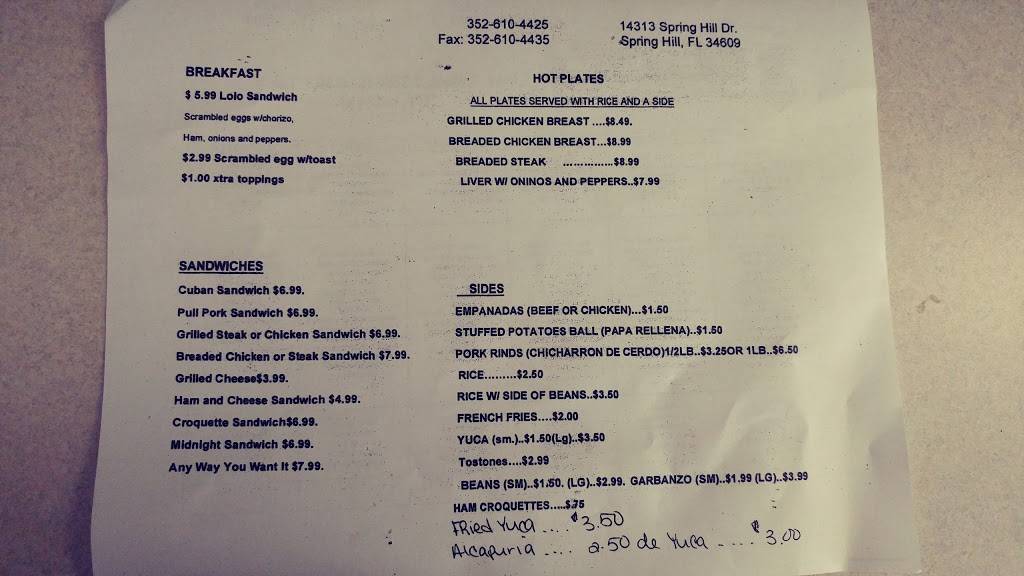 352-610-4425
Fax: 352-610-4435
14313 Spring Hill Dr.
Spring Hill, FL 34609
BREAKFAST
$ 5.99 Lolo Sandwich
Scrambled eggs w/chorizo,
Ham, onions and peppers.
$2.99 Scrambled egg w/toast
$1.00 xtra toppings
HOT PLATES
ALL PLATES SERVED WITH RICE AND A SIDE
GRILLED CHICKEN BREAST ....$8.49.
BREADED CHICKEN BREAST...$8.99
BREADED STEAK ..............$8.99
LIVER W/ ONINOS AND PEPPERS..$7.99
SANDWICHES
Cuban Sandwich $6.99.
Pull Pork Sandwich $6.99.
Grilled Steak or Chicken Sandwich $6.99.
Breaded Chicken or Steak Sandwich $7.99.
Grilled Cheese$3.99.
Ham and Cheese Sandwich $4.99.
Croquette Sandwich$6.99.
Midnight Sandwich $6.99.
Any Way You Want It $7.99.
SIDES
EMPANADAS (BEEF OR CHICKEN)...$1.50
STUFFED POTATOES BALL (PAPA RELLENA)..$1.50
PORK RINDS (CHICHARRON DE CERDO)1/2LB..$3.25OR 1LB..$6.50
RICE.........$2.50
RICE W/ SIDE OF BEANS..$3.50
FRENCH FRIES....$2.00
YUCA (sm.)..$1.50(Lg)..$3.50
Tostones....$2.99
BEANS (SM)..$1.50. (LG)..$2.99. GARBANZO (SM)..$1.99 (LG)..$3.99
HAM CROQUETTES.....$.75
FRied Yuca .... $3.50
Alcapuria .... 2.50 de Yuca ..... $3.00